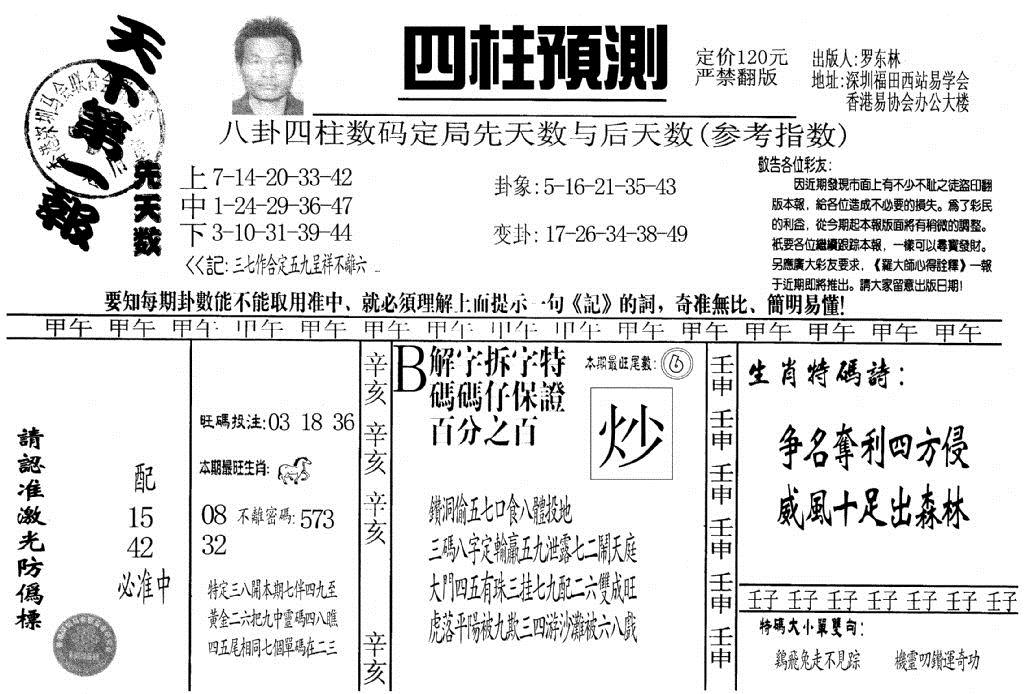 天下第一報
先天数
四柱預測
定价120元
严禁翻版
出版人:罗东林
地址:深圳福田西站易学会
香港易协会办公大楼
八卦四柱数码定局先天数与后天数(参考指数)
上 7-14-20-33-42
中 1-24-29-36-47
下 3-10-31-39-44
<<記:三七作合定五九呈祥不離六
卦象:5-16-21-35-43
变卦:17-26-34-38-49
敬告各位彩友:
因近期發現市面上有不少不耻之徒盜印翻
版本報,給各位造成不必要的損失。爲了彩民
的利益,從今期起本報版面將有稍微的調整。
衹要各位繼續跟踪本報,一樣可以尋寶發財。
另應廣大彩友要求,《羅大師心得詮釋》一報
于近期即將推出。請大家留意出版日期!
要知每期卦數能不能取用准中、就必須理解上面提示一句《記》的詞,奇准無比、簡明易懂!
甲午 甲午 甲午 甲午 甲午 甲午 甲午 甲午 甲午 甲午 甲午 甲午 甲午 甲午 甲午
請認准激光防僞標
配
15
42
必准中
旺碼投注:03 18 36
本期最旺生肖:
08 不離密碼:573
32
特定三八開本期七伴四九至
黃金二六把九中靈碼四八瞧
四五尾相同七個單碼在二三
辛亥 辛亥 辛亥 辛亥
B解字拆字特
碼碼仔保證
百分之百
本期最旺尾數:6
炒
鑽洞偷五七口食八體投地
三碼八字定輸贏五九泄露七二鬧天庭
大門四五有珠三挂七九配二六雙成旺
虎落平陽被九欺三四游沙灘被六八戲
壬申 壬申 壬申 壬申 壬申 壬申
生肖特碼詩:
争名奪利四方侵
威風十足出森林
壬子 壬子 壬子 壬子 壬子 壬子 壬子
特碼大小單雙句:
鷄飛兔走不見踪 機靈叨鑽運奇功